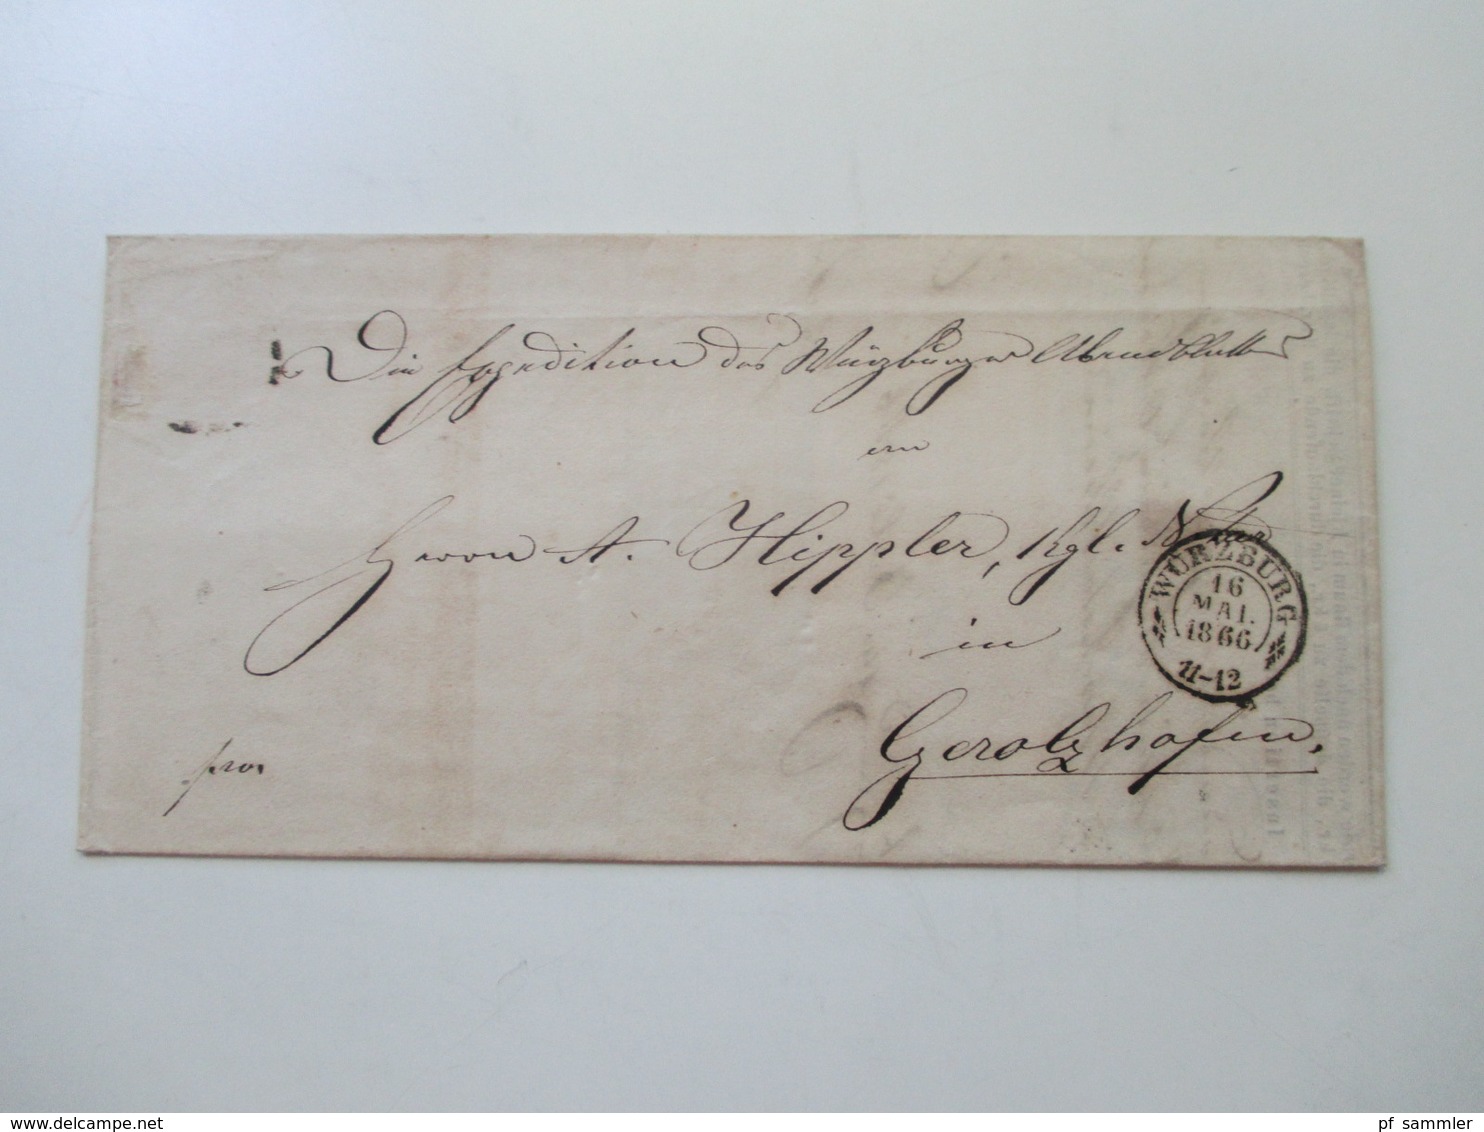 Die Expedition des Würzburger Abendblattes
an
Herrn A. Hippler, kgl. Notar
in
Gerolzhofen.
WÜRZBURG
16
MAI.
1866
11-12
delcampe.net
pf_sammler